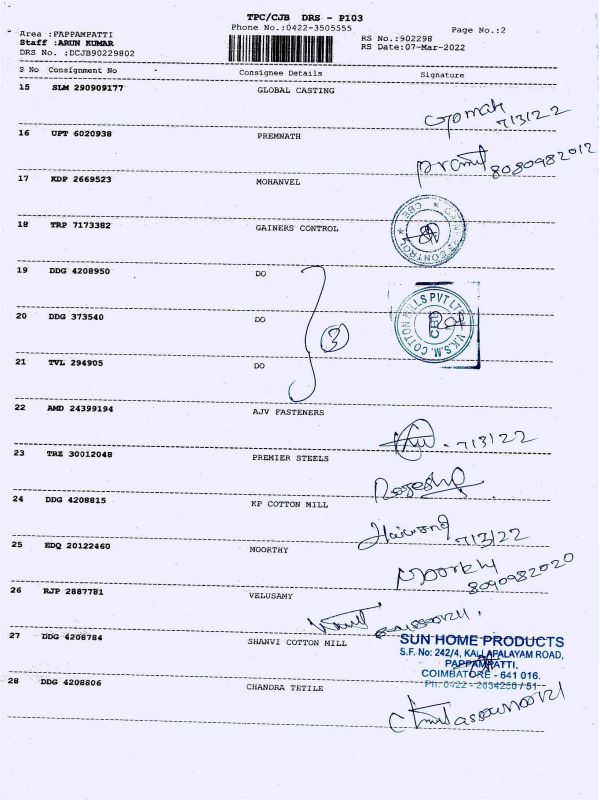 TPC/CJB DRS - P103
Phone No.:0422-3505555
Page No.:2
Area :PAPPAMPATTI
Staff :ARUN KUMAR
DRS No. :DCJB90229802
RS No.:902298
RS Date:07-Mar-2022
S No Consignment No Consignee Details Signature
15 SLM 290909177 GLOBAL CASTING
Gomati 7/3/22
16 UPT 6020938 PREMNATH
8080982012
17 KDP 2669523 MOHANVEL
18 TRP 7173382 GAINERS CONTROL
19 DDG 4208950 DO
20 DDG 373540 DO
3
V.K.S.M. COTTON MILLS PVT LTD
21 TVL 294905 DO
22 AMD 24399194 AJV FASTENERS
7/3/22
23 TRZ 30012048 PREMIER STEELS
24 DDG 4208815 KP COTTON MILL
7/3/22
25 EDQ 20122460 MOORTHY
Moorthy 8090982020
26 RJP 2887781 VELUSAMY
27 DDG 4208784 SHANVI COTTON MILL
SUN HOME PRODUCTS
S.F. No: 242/4, KALLAPALAYAM ROAD,
PAPPAMPATTI.
COIMBATORE - 641 016.
28 DDG 4208806 CHANDRA TETILE